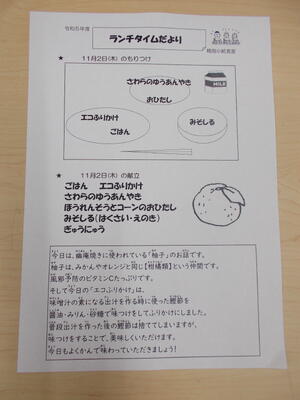 令和5年度
ランチタイムだより
★ 11月2日(木)のもりつけ
さわらのゆうあんやき
MILK
おひたし
エコふりかけ
みそしる
ごはん
★ 11月2日(木)の献立
ごはん エコふりかけ
さわらのゆうあんやき
ほうれんそうとコーンのおひたし
みそしる(はくさい・えのき)
ぎゅうにゅう
今日は、幽庵焼きに使われている「柚子」のお話です。
柚子は、みかんやオレンジと同じ【柑橘類】という仲間です。
風邪予防のビタミンCたっぷりです。
そして今日の「エコふりかけ」は、
味噌汁の素になる出汁を作る時に使った鰹節を
醤油・みりん・砂糖で味つけをしてふりかけにしました。
普段出汁を作った後の鰹節は捨ててしまいますが、
味つけをすることで、美味しくいただけます。
今日もよくかんで味わっていただきましょう!